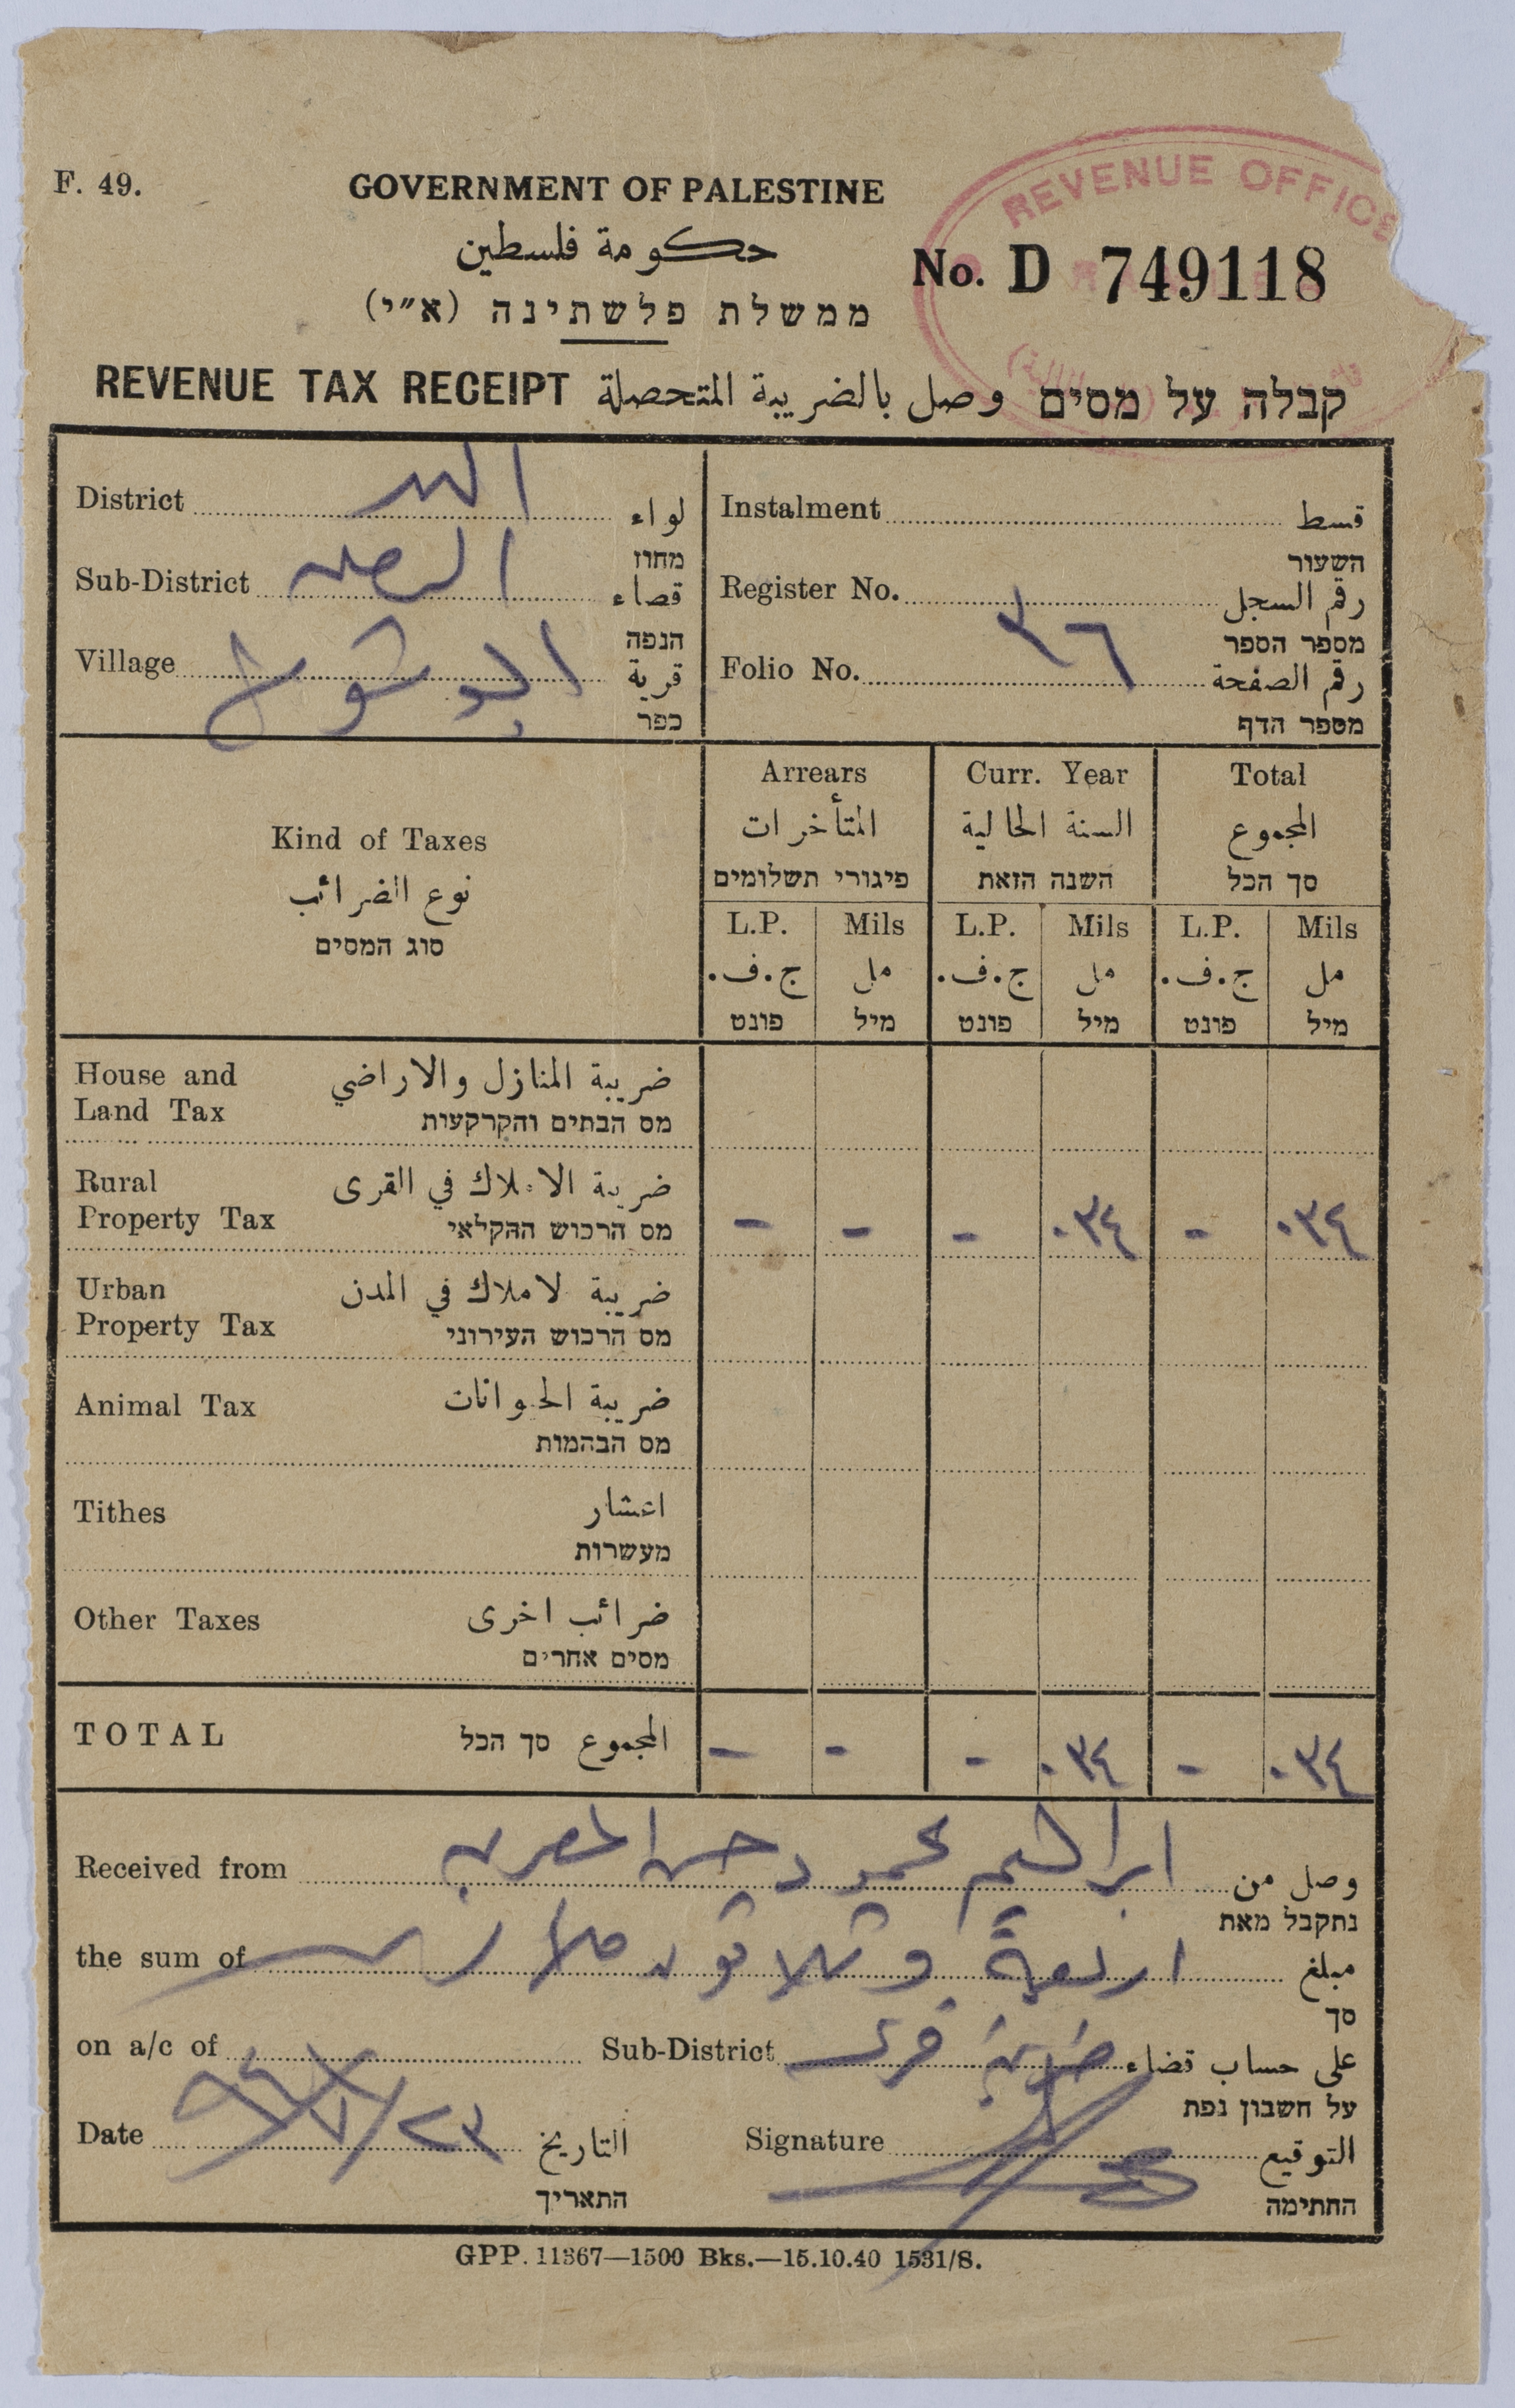 F. 49.
GOVERNMENT OF PALESTINE
حكومة فلسطين
ממשלת פלשתינה (א״י)
REVENUE OFFICE
No. D 749118
REVENUE TAX RECEIPT وصل بالضريبة المتحصلة קבלה על מסים
District لواء
מחוז
Sub-District قضاء
הנפה
Village قرية
כפר
Instalment قسط
השעור
Register No. رقم السجل
מספר הספר
Folio No. ٣٦ رقم الصفحة
מספר הדף
Kind of Taxes
نوع الضرائب
סוג המסים
Arrears Curr. Year Total
المتأخرات السنة الحالية المجموع
פיגורי תשלומים השנה הזאת סך הכל
L.P. Mils L.P. Mils L.P. Mils
ج.ف. مل ج.ف. مل ج.ف. مل
פונט מיל פונט מיל פונט מיל
House and Land Tax ضريبة المنازل والاراضي
מס הבתים והקרקעות
Rural Property Tax ضريبة الاملاك في القرى
מס הרכוש החקלאי
- - - ٠٣٤ - ٠٣٤
Urban Property Tax ضريبة لاملاك في المدن
מס הרכוש העירוני
Animal Tax ضريبة الحيوانات
מס הבהמות
Tithes اعشار
מעשרות
Other Taxes ضرائب اخرى
מסים אחרים
TOTAL المجموع סך הכל - - - ٠٣٤ - ٠٣٤
Received from ابراهيم محمود حسن وصل من
נתקבל מאת
the sum of اربعة وثلاثون ملا مبلغ
סך
on a/c of Sub-District ضريبة قرى على حساب قضاء
על חשבון נפת
Date التاريخ
התאריך
Signature التوقيع
החתימה
GPP. 11367—1500 Bks.—15.10.40 1531/S.